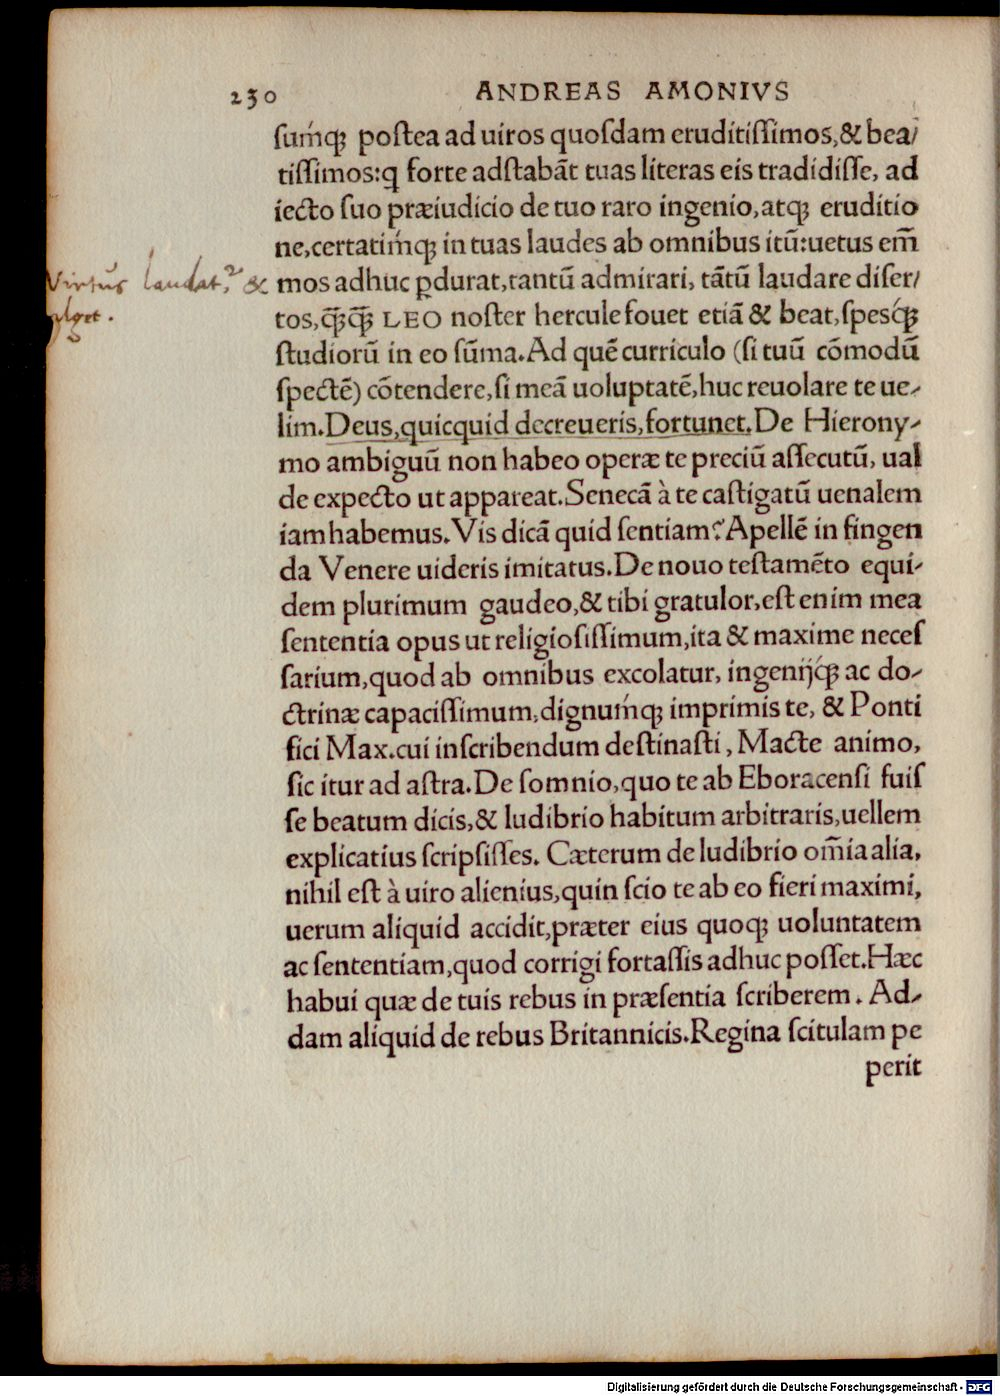 230 ANDREAS AMONIVS
ſumq́; poſtea ad uiros quoſdam eruditiſſimos,& bea/
tiſſimos:q forte adſtabāt tuas literas eis tradidiſſe, ad
iecto ſuo præiudicio de tuo raro ingenio,atq; eruditio
ne,certatimq́; in tuas laudes ab omnibus itū:uetus em̄
Virtus laudat, &
mos adhuc ꝑdurat,tantū admirari, tātū laudare diſer/
alget.
tos,q̄ꝫq̄ꝫ LEO noſter hercule fouet etiā & beat,ſpesq́ꝫ
ſtudiorū in eo ſūma.Ad quē curriculo (ſi tuū cōmodū
ſpectē) cōtendere,ſi meā uoluptatē,huc reuolare te ue-
lim.Deus,quicquid decreueris,fortunet.De Hierony-
mo ambiguū non habeo operæ te preciū aſſecutū, ual
de expecto ut appareat.Senecā à te caſtigatū uenalem
iam habemus.Vis dicā quid ſentiam? Apellē in fingen
da Venere uideris imitatus.De nouo teſtamēto equi-
dem plurimum gaudeo,& tibi gratulor,eſt enim mea
ſententia opus ut religioſiſſimum,ita & maxime neceſ
ſarium,quod ab omnibus excolatur, ingenijq́ꝫ ac do-
ctrinæ capaciſſimum,dignumq́; imprimis te, & Ponti
fici Max.cui inſcribendum deſtinaſti, Macte animo,
ſic itur ad aſtra.De ſomnio,quo te ab Eboracenſi fuiſ
ſe beatum dicis,& ludibrio habitum arbitraris,uellem
explicatius ſcripſiſſes. Cæterum de ludibrio om̄ia alia,
nihil eſt à uiro alienius,quin ſcio te ab eo fieri maximi,
uerum aliquid accidit,præter eius quoq; uoluntatem
ac ſententiam,quod corrigi fortaſſis adhuc poſſet.Hæc
habui quæ de tuis rebus in præſentia ſcriberem. Ad-
dam aliquid de rebus Britannicis.Regina ſcitulam pe
perit
Digitalisierung gefördert durch die Deutsche Forschungsgemeinschaft - DFG